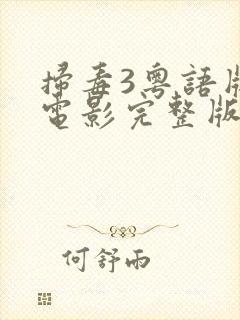 掃毒3粵語版
電影完整版
何舒雨